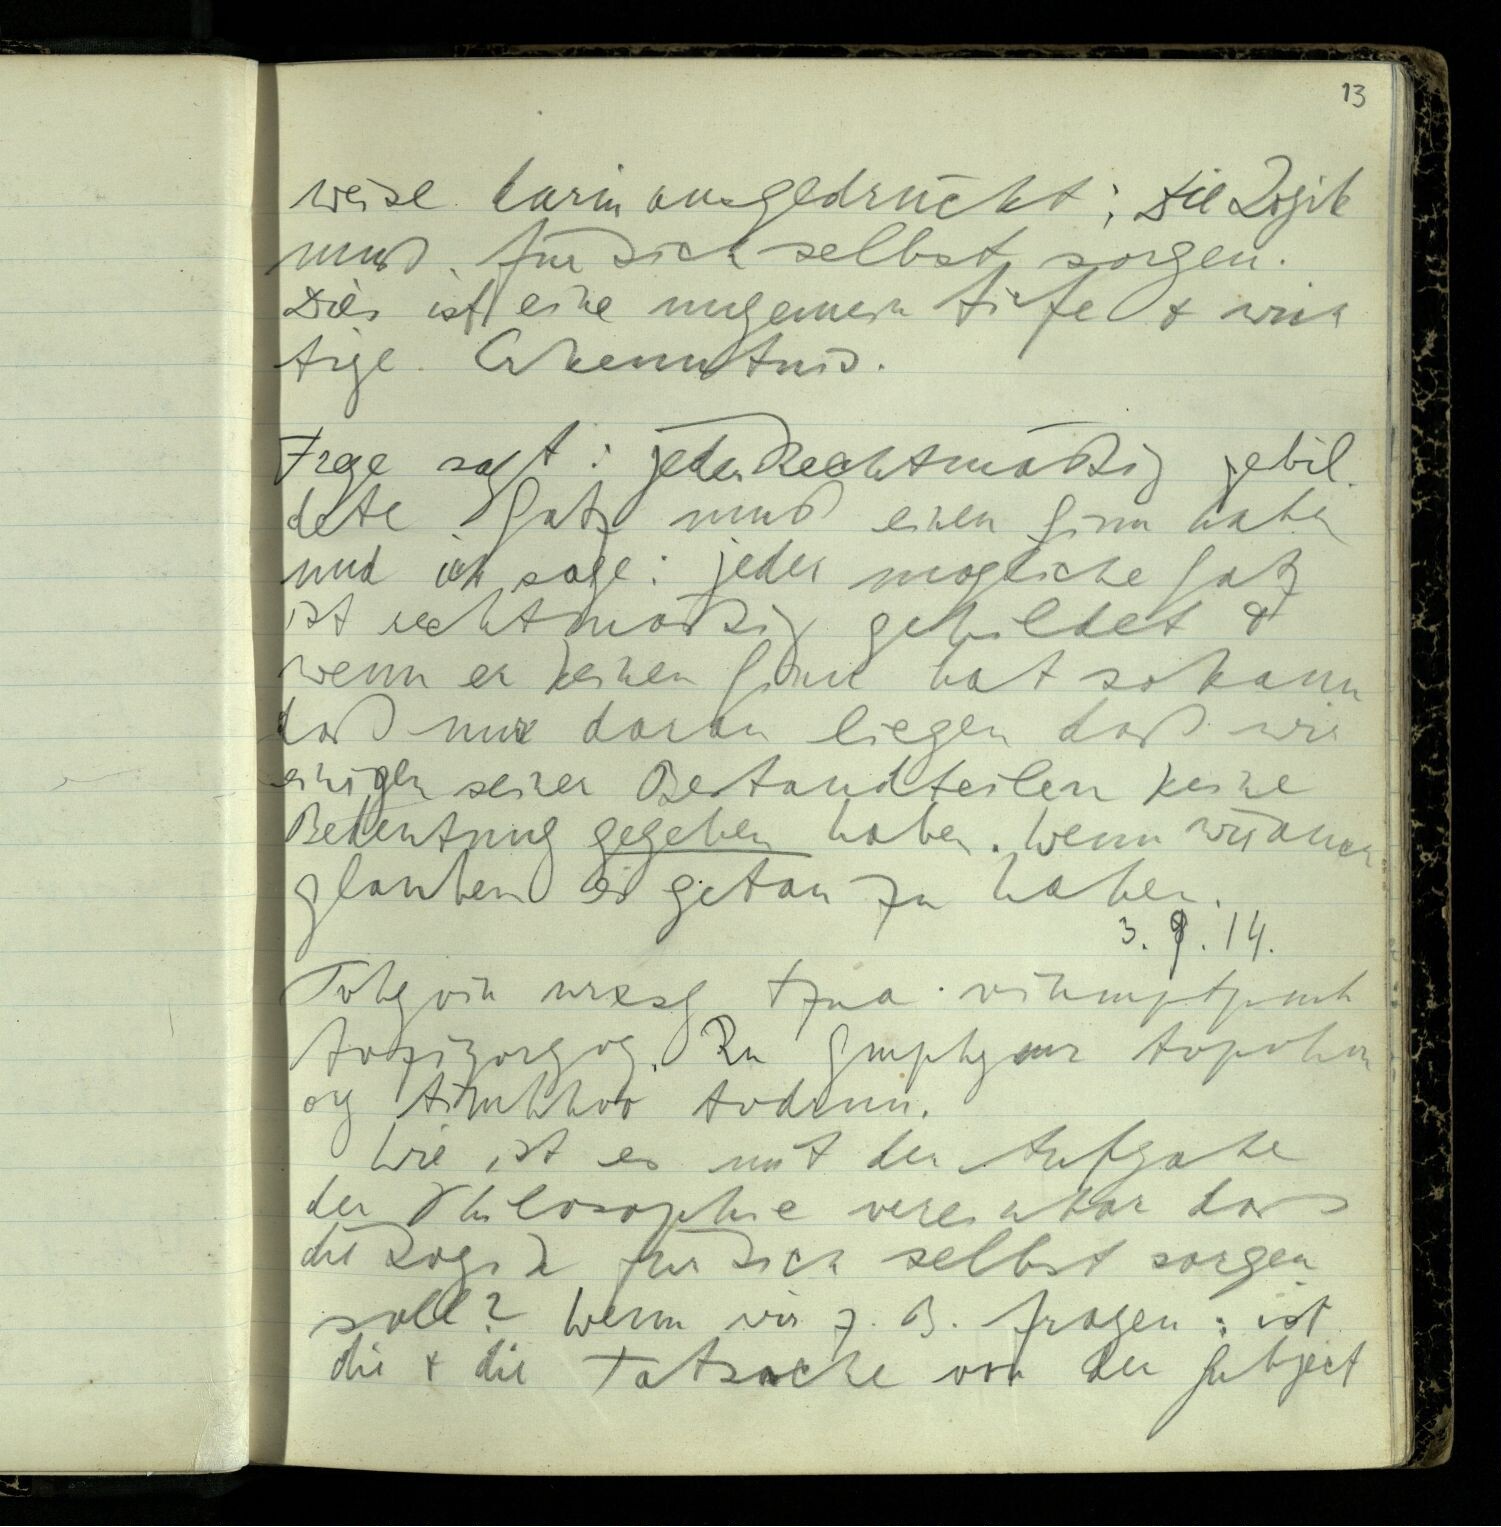 13
weise darin ausgedrückt: Die Logik
muß für sich selbst sorgen.
Dies ist eine ungemein tiefe & wich
tige Erkenntnis.
Frege sagt: jeder rechtmäßig gebil-
dete Satz muß einen Sinn haben
und ich sage: jeder mögliche Satz
ist rechtmäßig gebildet &
wenn er keinen Sinn hat so kann
daß nur daran liegen daß wir
einigen seiner Bestandteilen keine
Bedeutung gegeben haben. Wenn wir auch
glauben es getan zu haben.
3. 9. 14.
Wie ist es mit der Aufgabe
der Philosophie vereinbar daß
die Logik für sich selbst sorgen
soll? Wenn wir z. B. fragen: ist
die & die Tatsache von der Subject